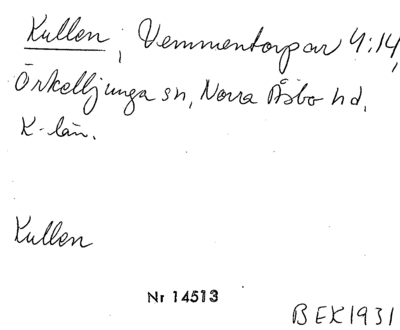 Kullen, Vemmentorpar 4:14,
Örkelljunga sn, Norra Åsbo hd.
K-län.
Kullen
Nr 14513
BEK1931